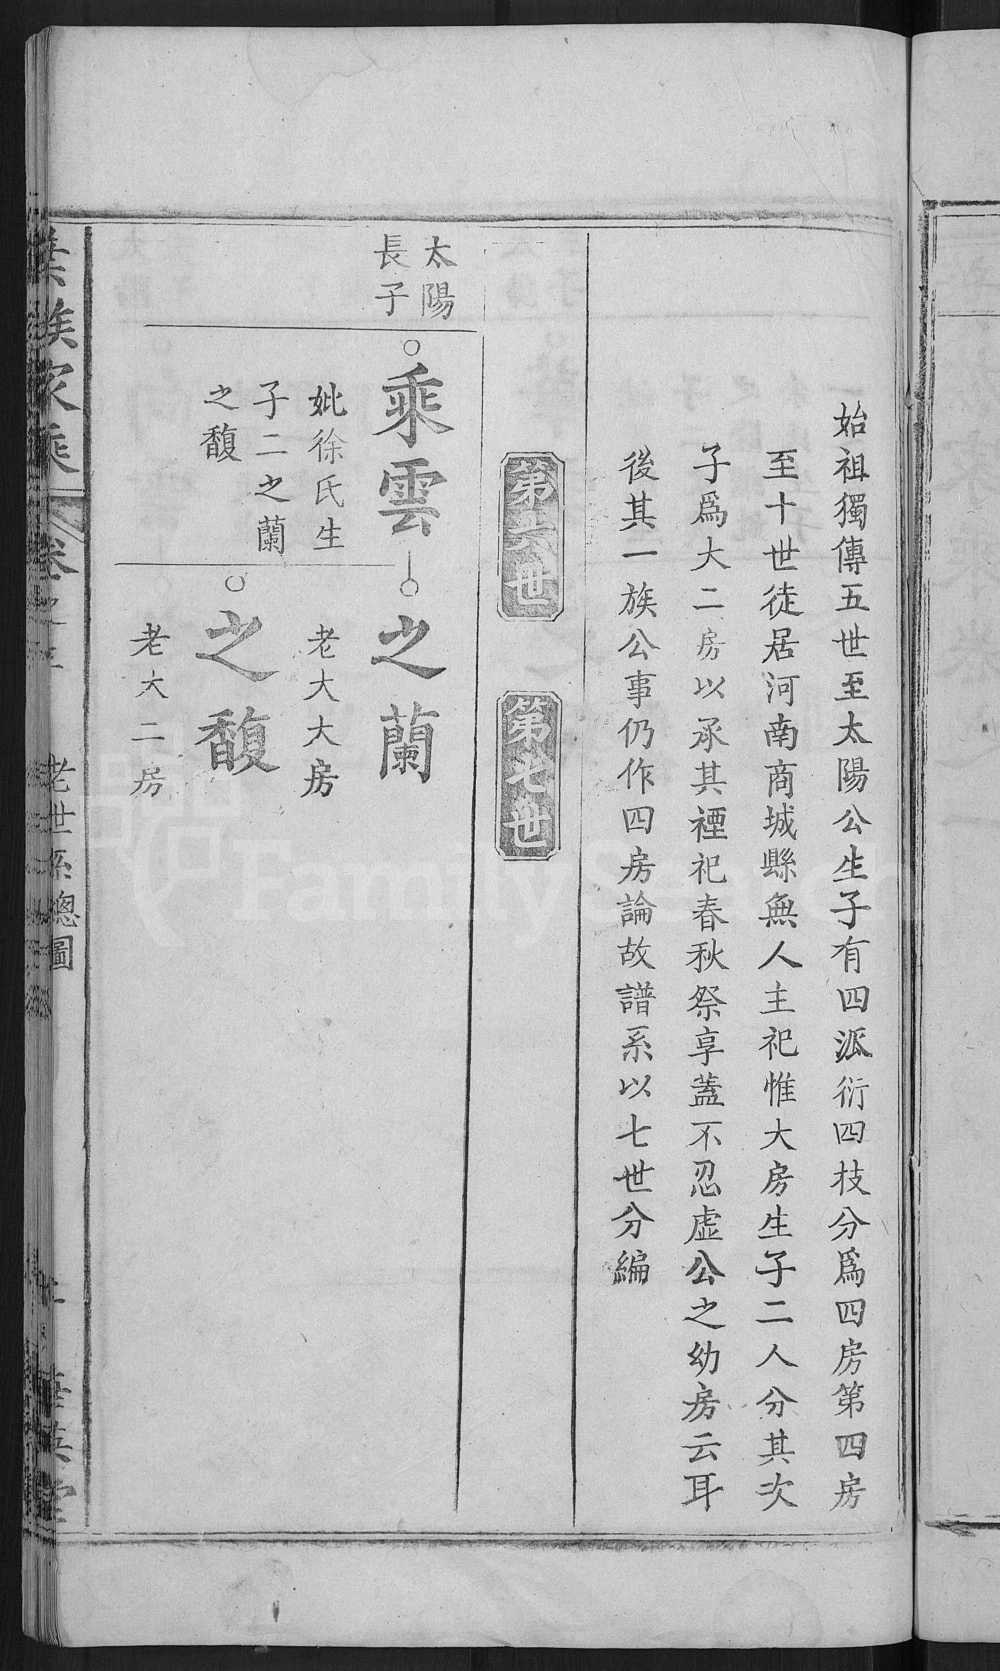 始祖獨傳五世至太陽公生子有四派衍四枝分爲四房第四房
至十世徒居河南商城縣無人主祀惟大房生子二人分其次
子爲大二房以承其禋祀春秋祭享蓋不忍虛公之幼房云耳
後其一族公事仍作四房論故譜系以七世分編
第六世
第七世
太陽
長子
乘雲
妣徐氏生
子二之蘭
之馥
之蘭
老大大房
之馥
老大二房
族家乘
卷之
老世系總圖
英堂